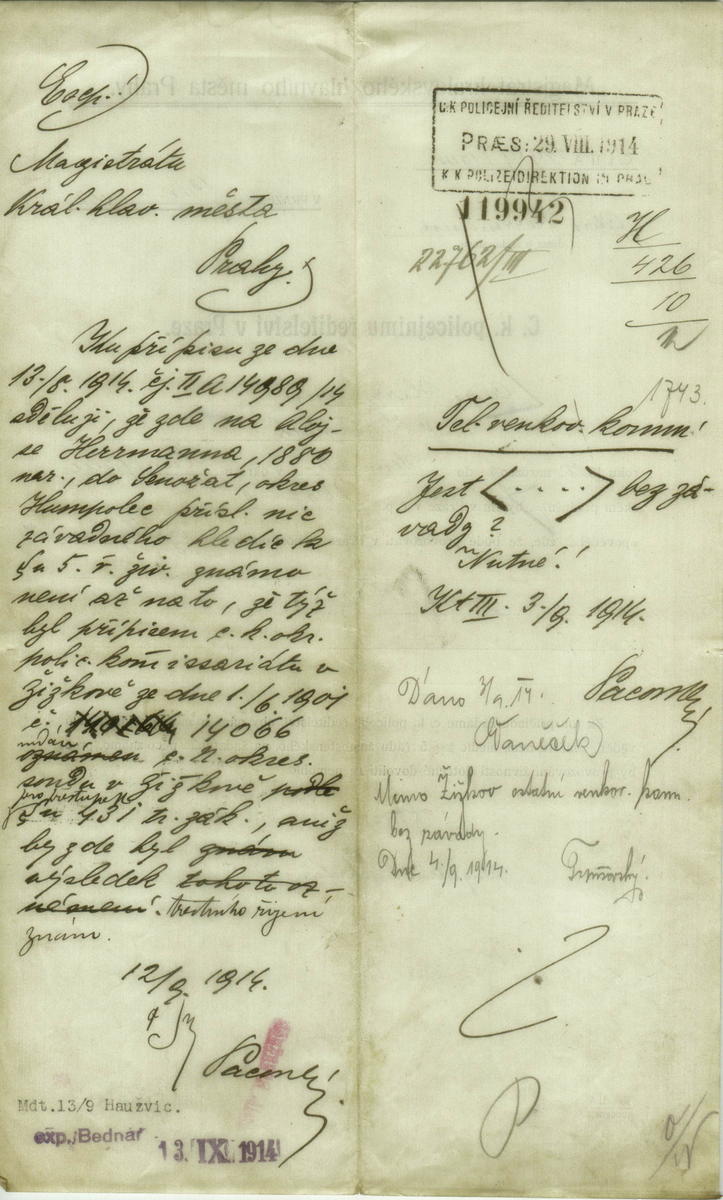 Exp.
Magistrátu
Král. hlav. města
Prahy.
Ku přípisu ze dne
13./8. 1914. čj. II A 14989/14
sděluji, že zde na Aloj-
se Herrmanna, 1880
nar., do Senožat, okres
Humpolec přísl. nic
závadného hledíc k
§u 5. ř. živ. známo
není až na to, že týž
byl přípisem c. k. okr.
polic. komissariátu v
Žižkově ze dne 1./6. 1901
č. 14066
udán
oznámen c. k. okres.
soudu v Žižkově podle
pro přestupek
§u 431 tr. zák., aniž
by zde byl znám
výsledek tohoto oz-
námení. trestního řízení
znám.
12/9. 1914.
Mdt.13/9 Haužvic.
exp. Bednář
13. IX. 1914
C.K. POLICEJNÍ ŘEDITELSTVÍ V PRAZE
PRÆS: 29. VIII. 1914
K. K. POLIZEIDIREKTION IN PRAG
119942
22762/III
H
426
10
1743.
Tel. venkov. komm!
Jest <. . . .> bez zá-
vady?
Nutné!
Kt III. 3./9. 1914.
Dáno 3/9 14.
Vaněček
Memo Žižkov ostatní venkov. kom.
bez závady.
Dne 4./9. 1914.